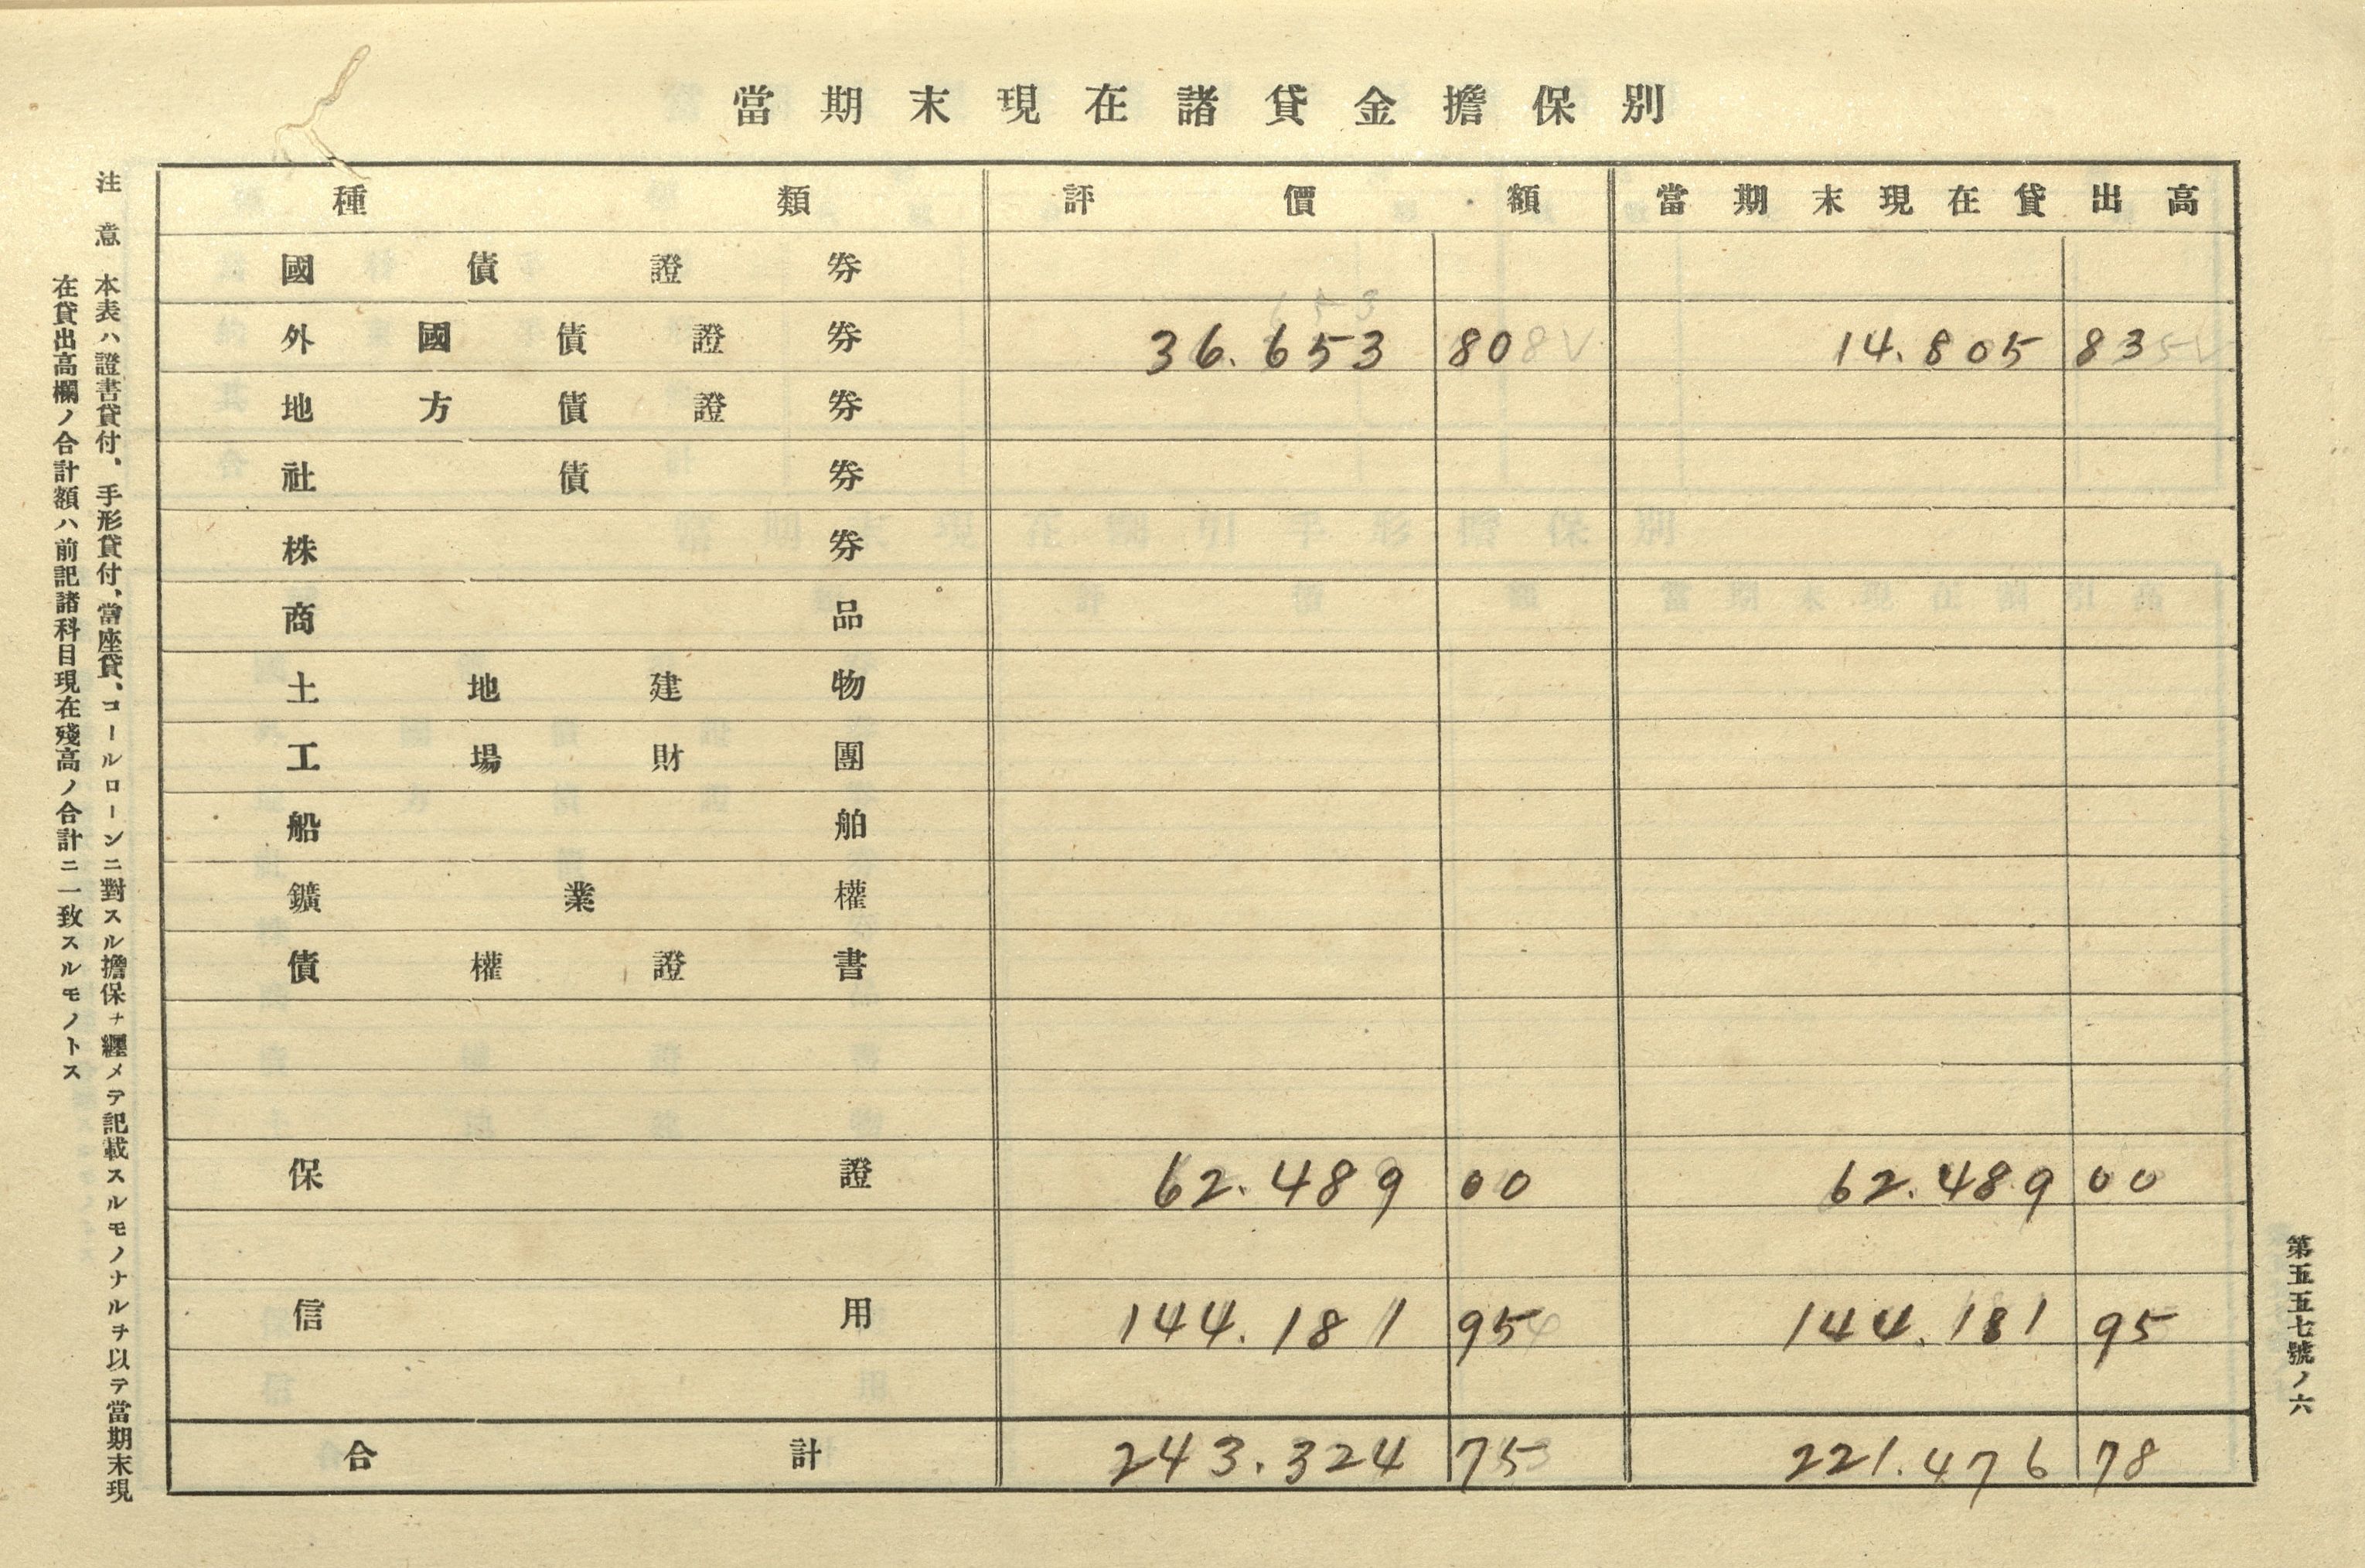 當期末現在諸貸金擔保別
種類 評價額 當期末現在貸出高
國債證券
外國債證券 36.653 80 14.805 83
地方債證券
社債券
株券
商品
土地建物
工場財團
船舶
鑛業權
債權證書
保證 62.489 00 62.489 00
信用 144.181 95 144.181 95
合計 243.324 75 221.476 78
注意 本表ハ證書貸付、手形貸付、當座貸、コールローンニ對スル擔保ヲ纒メテ記載スルモノナルヲ以テ當期末現
在貸出高欄ノ合計額ハ前記諸科目現在殘高ノ合計ニ一致スルモノトス
第五五七號ノ六